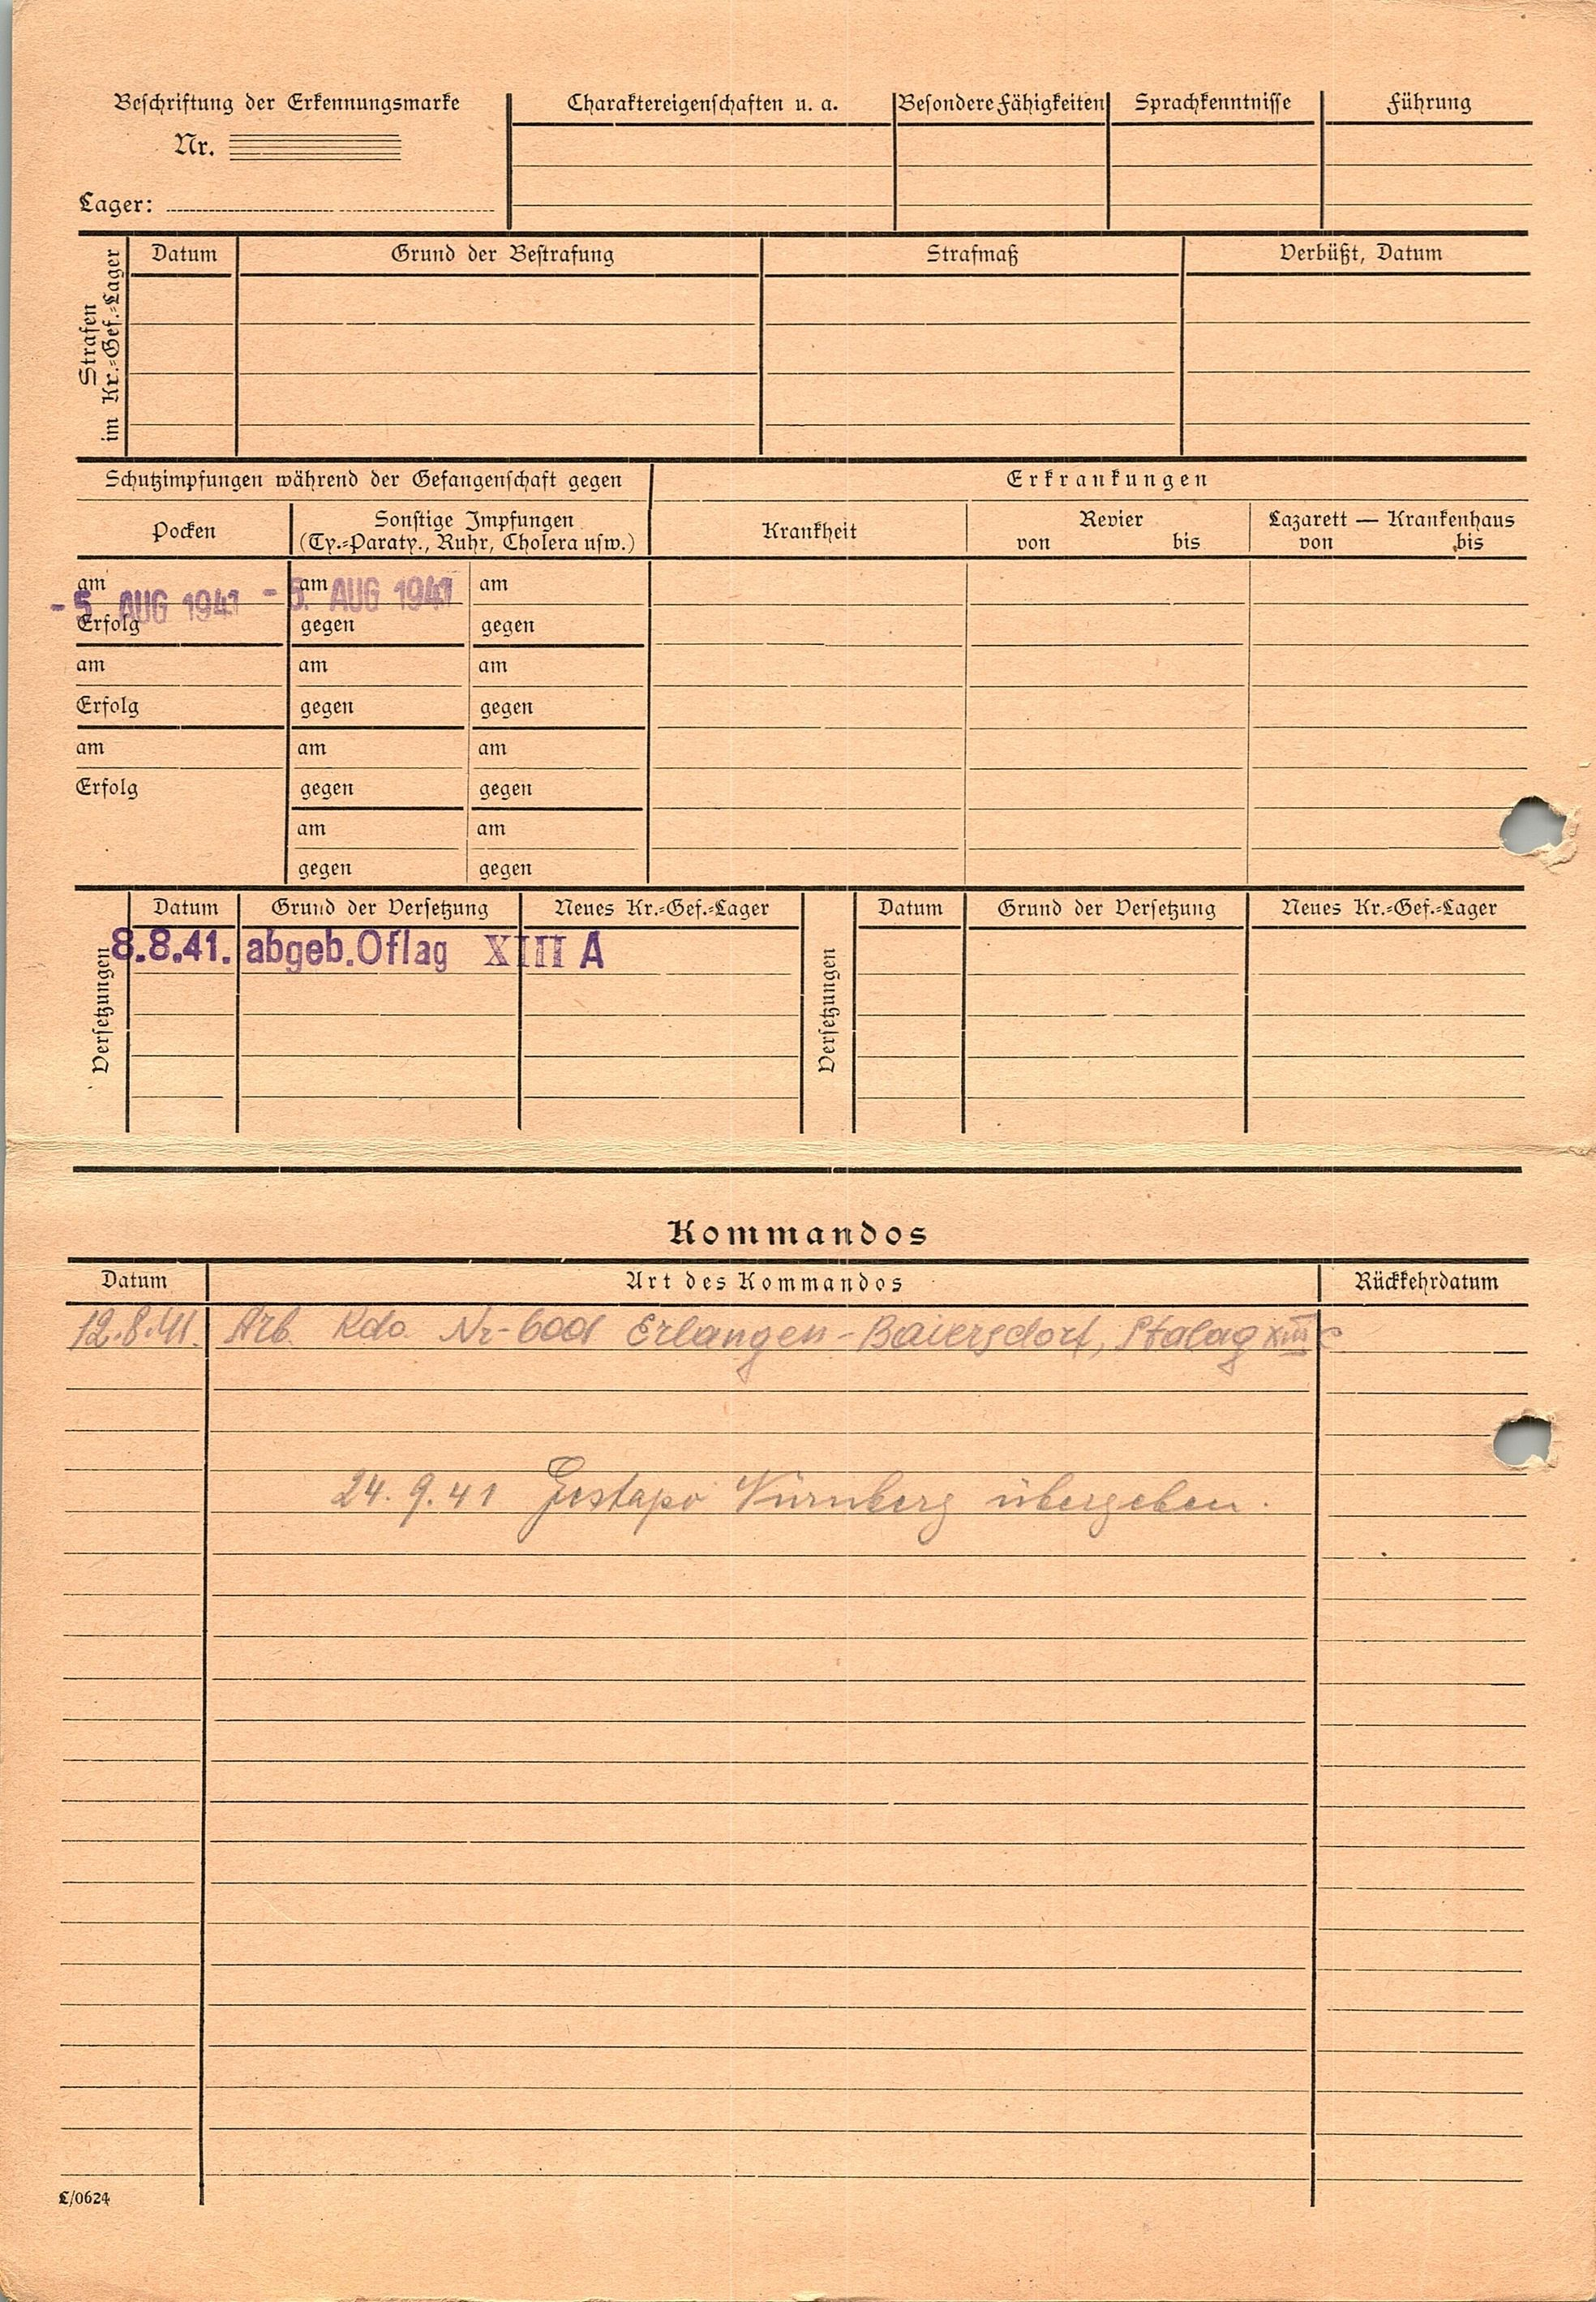 Beschriftung der Erkennungsmarke
Nr.
Lager:
Charaktereigenschaften u. a.
Besondere Fähigkeiten
Sprachkenntnisse
Führung
Strafen
im Kr.-Gef.-Lager
Datum
Grund der Bestrafung
Strafmaß
Verbüßt, Datum
Schutzimpfungen während der Gefangenschaft gegen
Erkrankungen
Pocken
Sonstige Impfungen
(Ty.-Paraty., Ruhr, Cholera usw.)
Krankheit
Revier
von bis
Lazarett — Krankenhaus
von bis
am am am
- 5. AUG 1941 - 5. AUG 1941
Erfolg gegen gegen
am am am
Erfolg gegen gegen
am am am
Erfolg gegen gegen
am am
gegen gegen
Versetzungen
Datum Grund der Versetzung Neues Kr.-Gef.-Lager
8.8.41. abgeb. Oflag XIII A
Versetzungen
Datum Grund der Versetzung Neues Kr.-Gef.-Lager
Kommandos
Datum Art des Kommandos Rückkehrdatum
12.8.41. Arb. Kdo. Nr-6001 Erlangen-Baiersdorf, Stalag XIII C
24.9.41 Gestapo Nürnberg übergeben.
L/0624